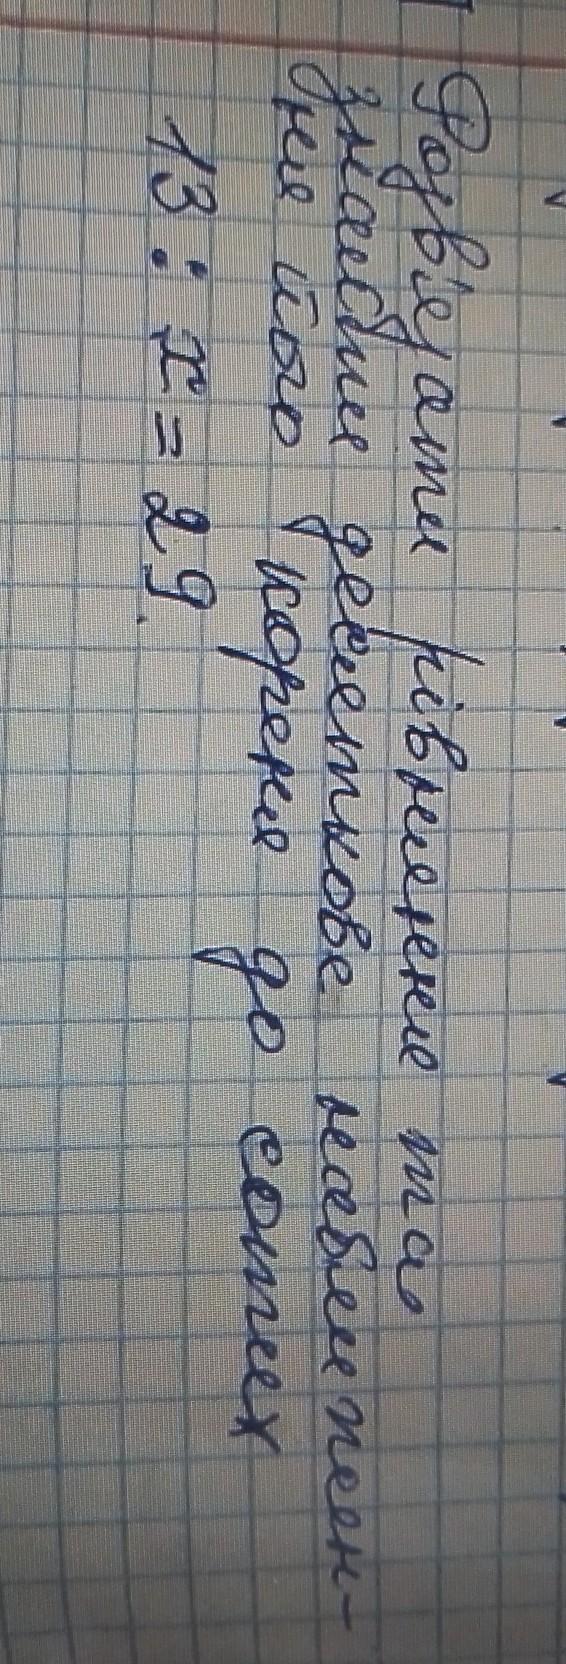 Розв'язати рівняння та
знайти десяткове наближен-
ня його кореня до сотих
13 : x = 29